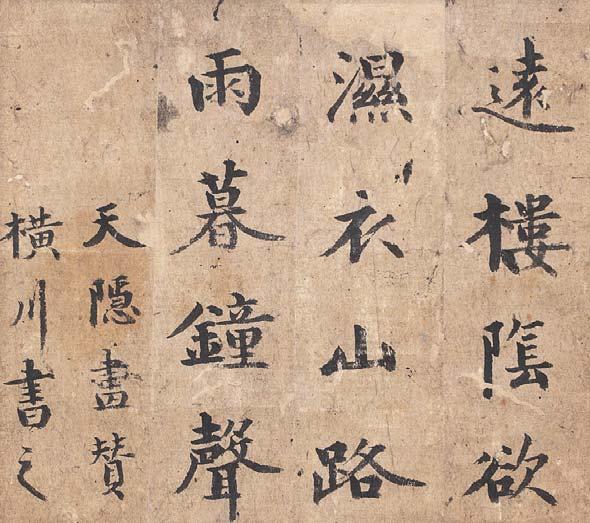 遠樓陰欲
濕衣山路
雨暮鐘聲
天隱畫贊
横川書之